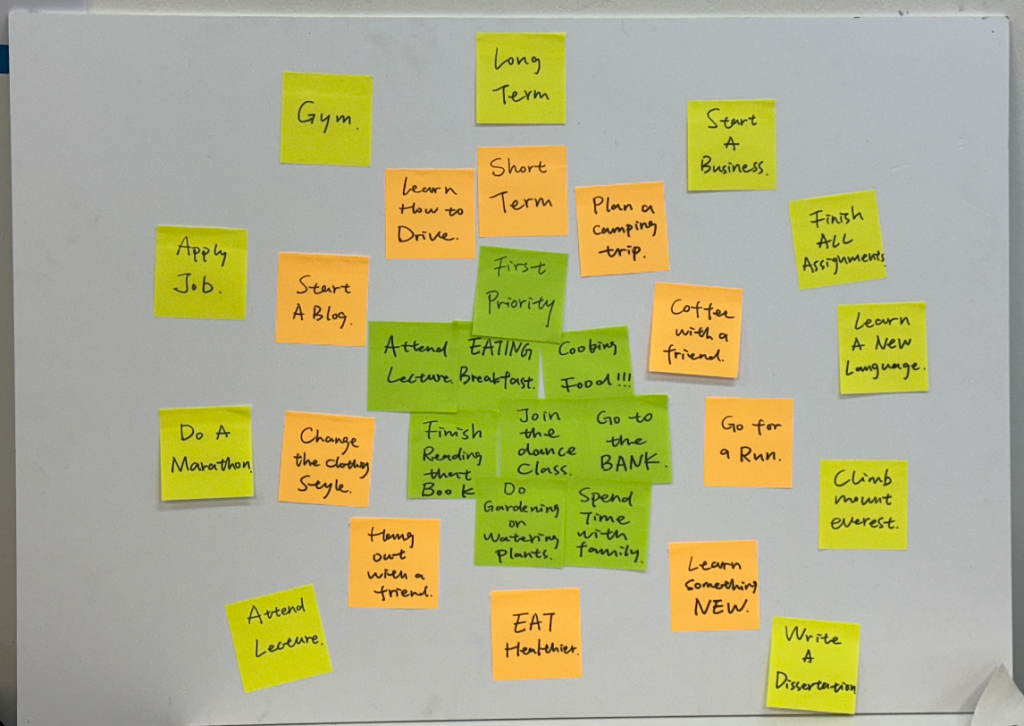 Long
Term
Gym.
Start
A
Business.
Short
Term
Learn
How to
Drive.
Plan a
camping
trip.
Finish
ALL
Assignments
Apply
Job.
First
Priority
Start
A Blog.
Coffee
with a
friend.
Learn
A New
Language.
Attend
Lecture.
EATING
Breakfast.
Cooking
Food!!!
Do A
Marathon.
Change
the clothing
Style.
Finish
Reading
that
Book
Join
the
dance
Class.
Go to
the
BANK.
Go for
a Run.
Climb
mount
everest.
Do
Gardening
or
Watering
plants.
Spend
Time
with
family.
Hang
out
with a
friend.
Learn
something
NEW.
Attend
Lecture.
EAT
Healthier.
Write
A
Dissertation